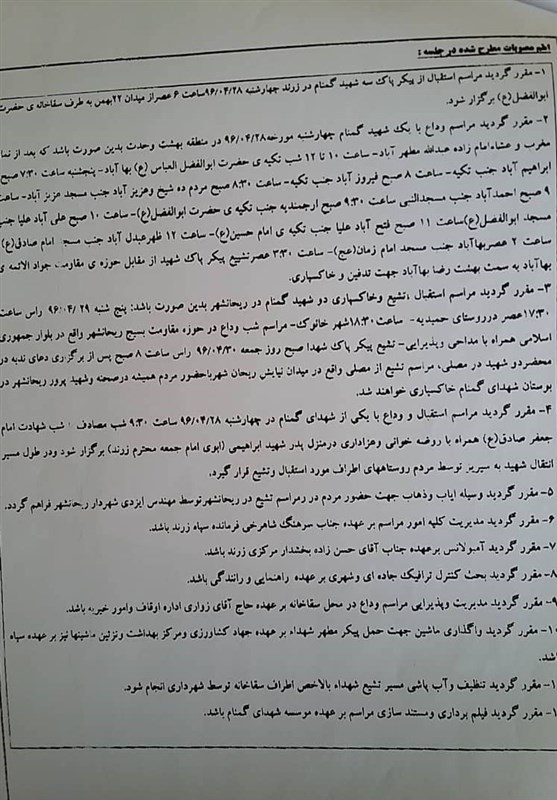 اهم مصوبات مطرح شده در جلسه :
۱- مقرر گردید مراسم استقبال از پیکر پاک سه شهید گمنام در زرند چهارشنبه ۹۶/۰۴/۲۸ ساعت ۶ عصر از میدان ۲۲بهمن به طرف سقاخانه ی حضرت
ابوالفضل(ع) برگزار شود.
۲- مقرر گردید مراسم وداع با یک شهید گمنام چهارشنبه مورخه ۹۶/۰۴/۲۸ در منطقه بهشت وحدت بدین صورت باشد که بعد از نماز
مغرب و عشاء امام زاده عبدالله مطهر آباد- ساعت ۱۰ تا ۱۲ شب تکیه ی حضرت ابوالفضل العباس (ع) بها آباد- پنجشنبه ساعت ۷:۳۰ صبح
ابراهیم آباد جنب تکیه- ساعت ۸ صبح فیروز آباد جنب تکیه- ساعت ۸:۳۰ صبح مردم ده شیخ وعزیز آباد جنب مسجد عزیز آباد- ساعت
۹ صبح احمدآباد جنب مسجدالنبی ساعت ۹:۳۰ صبح ارجمندیه جنب تکیه ی حضرت ابوالفضل(ع)- ساعت ۱۰ صبح علی آباد علیا جنب
مسجد ابوالفضل(ع)ساعت ۱۱ صبح فتح آباد علیا جنب تکیه ی امام حسین(ع)- ساعت ۱۲ ظهرعبدل آباد جنب مسجد امام صادق(ع)
ساعت ۲ عصربهاآباد جنب مسجد امام زمان(عج)- ساعت ۳:۳۰ عصرتشییع پیکر پاک شهید از مقابل حوزه ی مقاومت جواد الائمه ی
بهاآباد به سمت بهشت رضا بهاآباد جهت تدفین و خاکسپاری.
۳- مقرر گردید مراسم استقبال ،تشیع وخاکسپاری دو شهید گمنام در ریحانشهر بدین صورت باشد: پنج شنبه ۹۶/۰۴/۲۹ راس ساعت
۱۷:۳۰عصر درروستای حمیدیه- ساعت ۱۸:۳۰شهر خانوک- مراسم شب وداع در حوزه مقاومت بسیج ریحانشهر واقع در بلوار جمهوری
اسلامی همراه با مداحی وپذیرایی- تشیع پیکر پاک شهدا صبح روز جمعه ۹۶/۰۴/۳۰ راس ساعت ۸ صبح پس از برگزاری دعای ندبه در
محضردو شهید در مصلی، مراسم تشیع از مصلی واقع در میدان نیایش ریحان شهرباحضور مردم همیشه درصحنه وشهید پرور ریحانشهر در
بوستان شهدای گمنام خاکسپاری خواهند شد.
۴- مقرر گردید مراسم استقبال و وداع با یکی از شهدای گمنام در چهارشنبه ۹۶/۰۴/۲۸ ساعت ۹:۳۰ شب مصادف شب شهادت امام
جعفر صادق(ع) همراه با روضه خوانی وعزاداری درمنزل پدر شهید ابراهیمی (ابوی امام جمعه محترم زرند) برگزار شود ودر طول مسیر
انتقال شهید به سیریز توسط مردم روستاههای اطراف مورد استقبال وتشیع قرار گیرد.
۵- مقرر گردید وسیله ایاب وذهاب جهت حضور مردم در رمراسم تشیع در ریحانشهرتوسط مهندس ایزدی شهردار ریحانشهر فراهم گردد.
۶- مقرر گردید مدیریت کلیه امور مراسم بر عهده جناب سرهنگ شاهرخی فرمانده سپاه زرند باشد.
۷- مقرر گردید آمبولانس برعهده جناب آقای حسن زاده بخشدار مرکزی زرند باشد.
۸- مقرر گردید بحث کنترل ترافیک جاده ای وشهری بر عهده راهنمایی و رانندگی باشد.
۹- مقرر گردید مدیریت وپذیرایی مراسم وداع در محل سقاخانه بر عهده حاج آقای زواری اداره اوقاف وامور خیریه باشد.
۱۰- مقرر گردید واگذاری ماشین جهت حمل پیکر مطهر شهداء بر عهده جهاد کشاورزی ومرکز بهداشت وتزئین ماشینها نیز بر عهده سپاه
باشد.
۱- مقرر گردید تنظیف وآب پاشی مسیر تشیع شهداء بالاخص اطراف سقاخانه توسط شهرداری انجام شود.
۱- مقرر گردید فیلم برداری ومستند سازی مراسم بر عهده موسسه شهدای گمنام باشد.